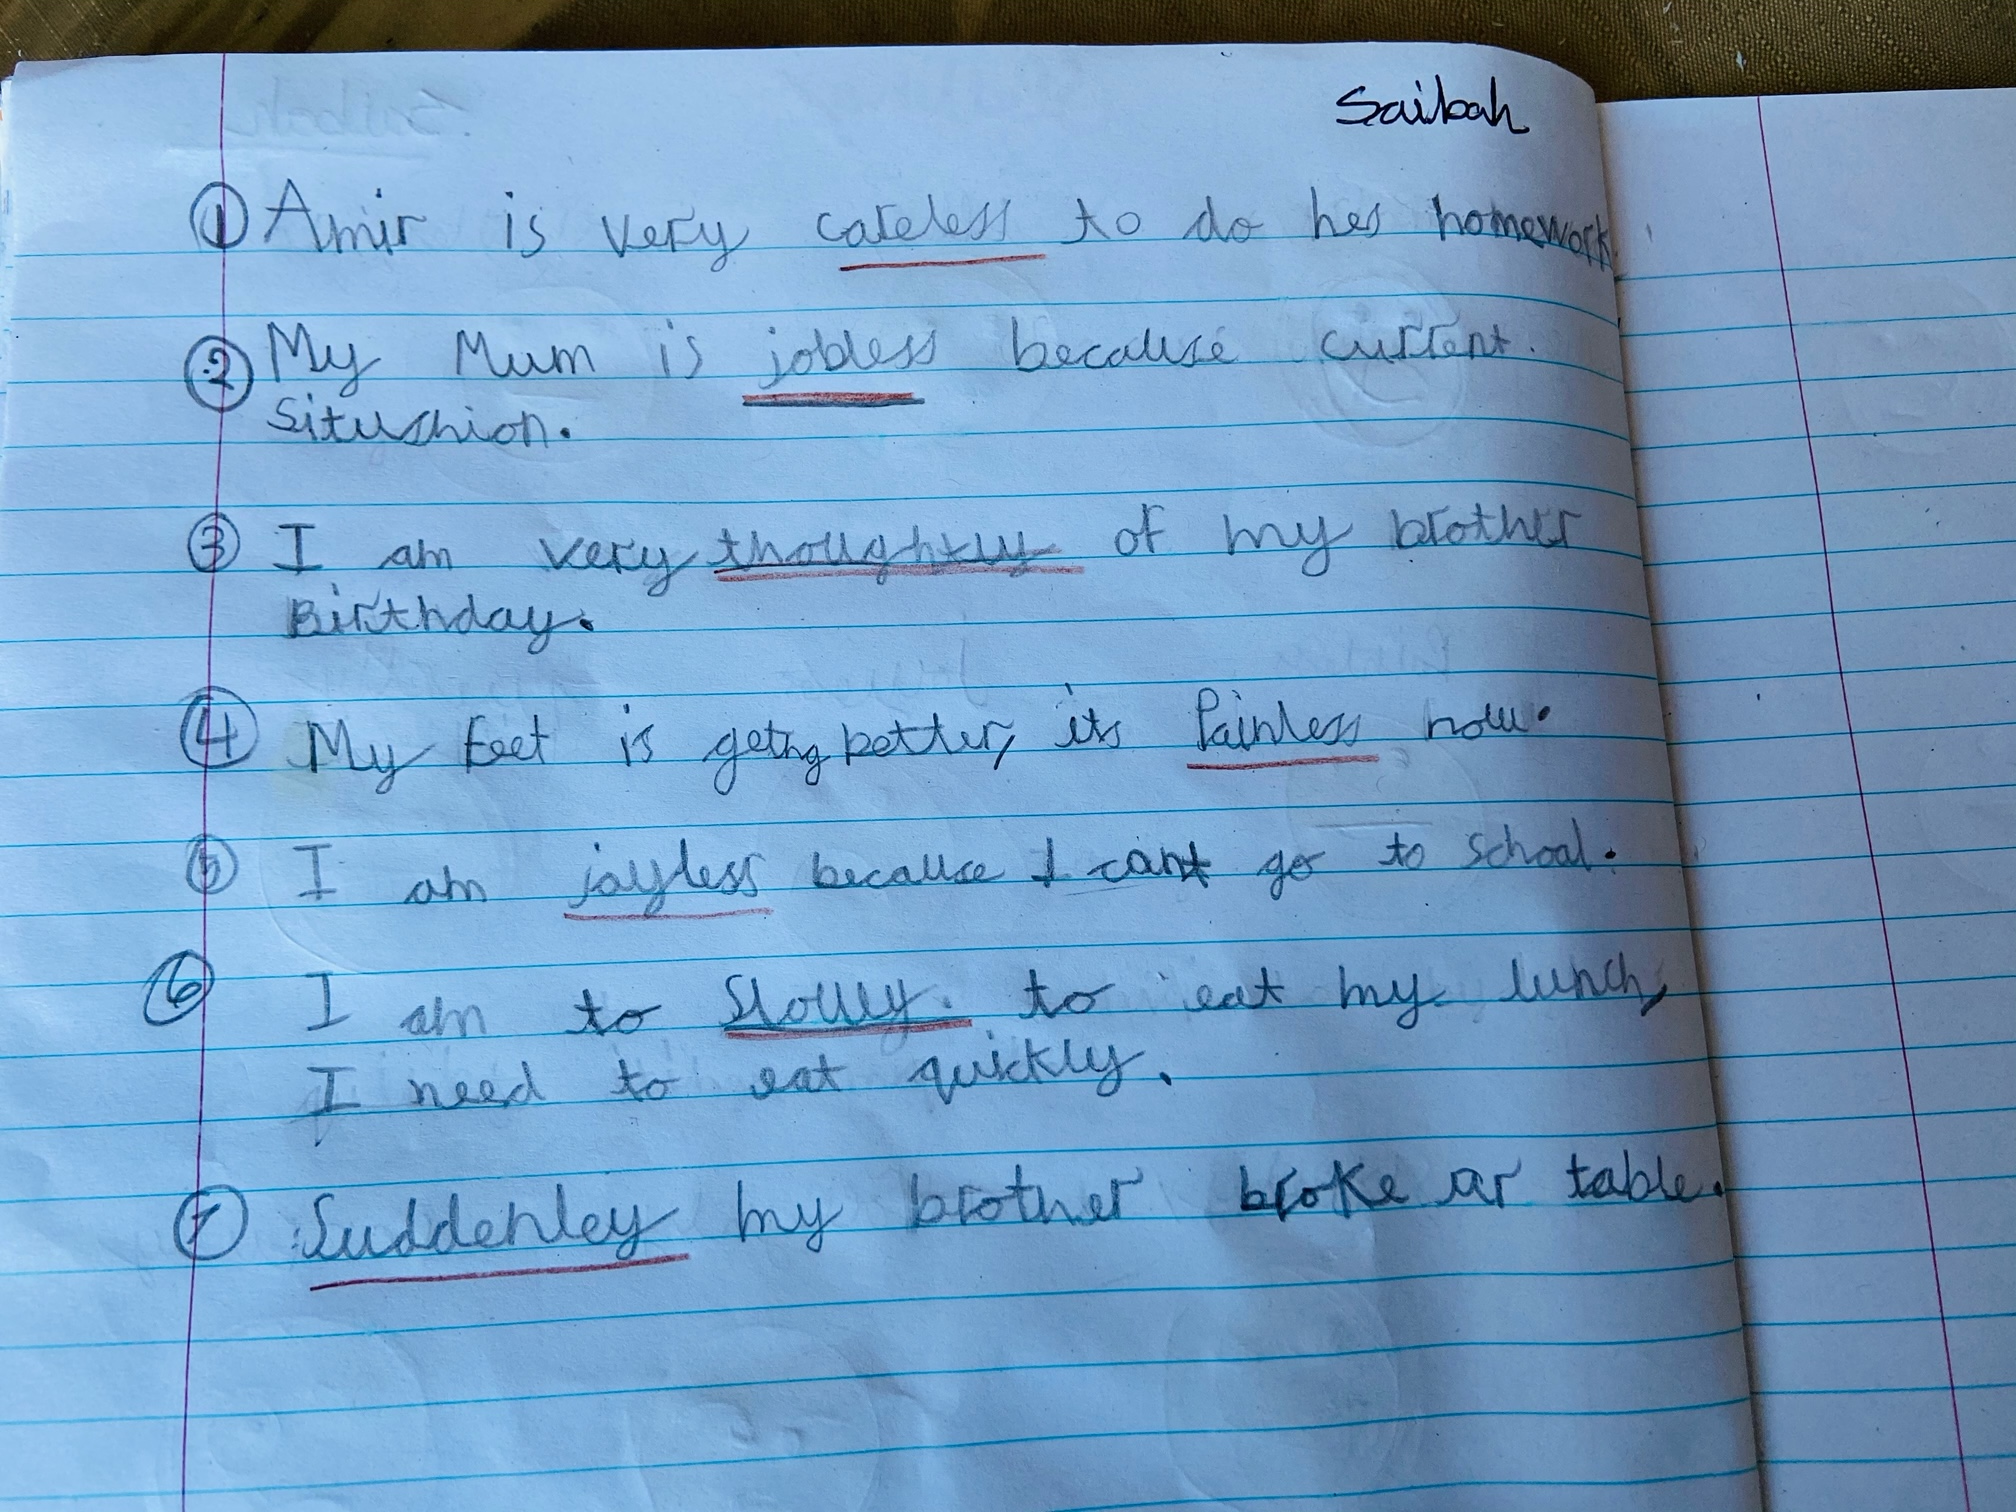 Saibah
① Amir is very careless to do hes homework.
② My Mum is jobless because current.
situshion.
③ I am very thoughtly of my brother
Birthday.
④ My feet is geting better, its Painless now.
⑤ I am joyless because I cant go to school.
⑥ I am to Slolly. to eat my lunch,
I need to eat quickly.
⑦ Suddenley my brother broke ar table.